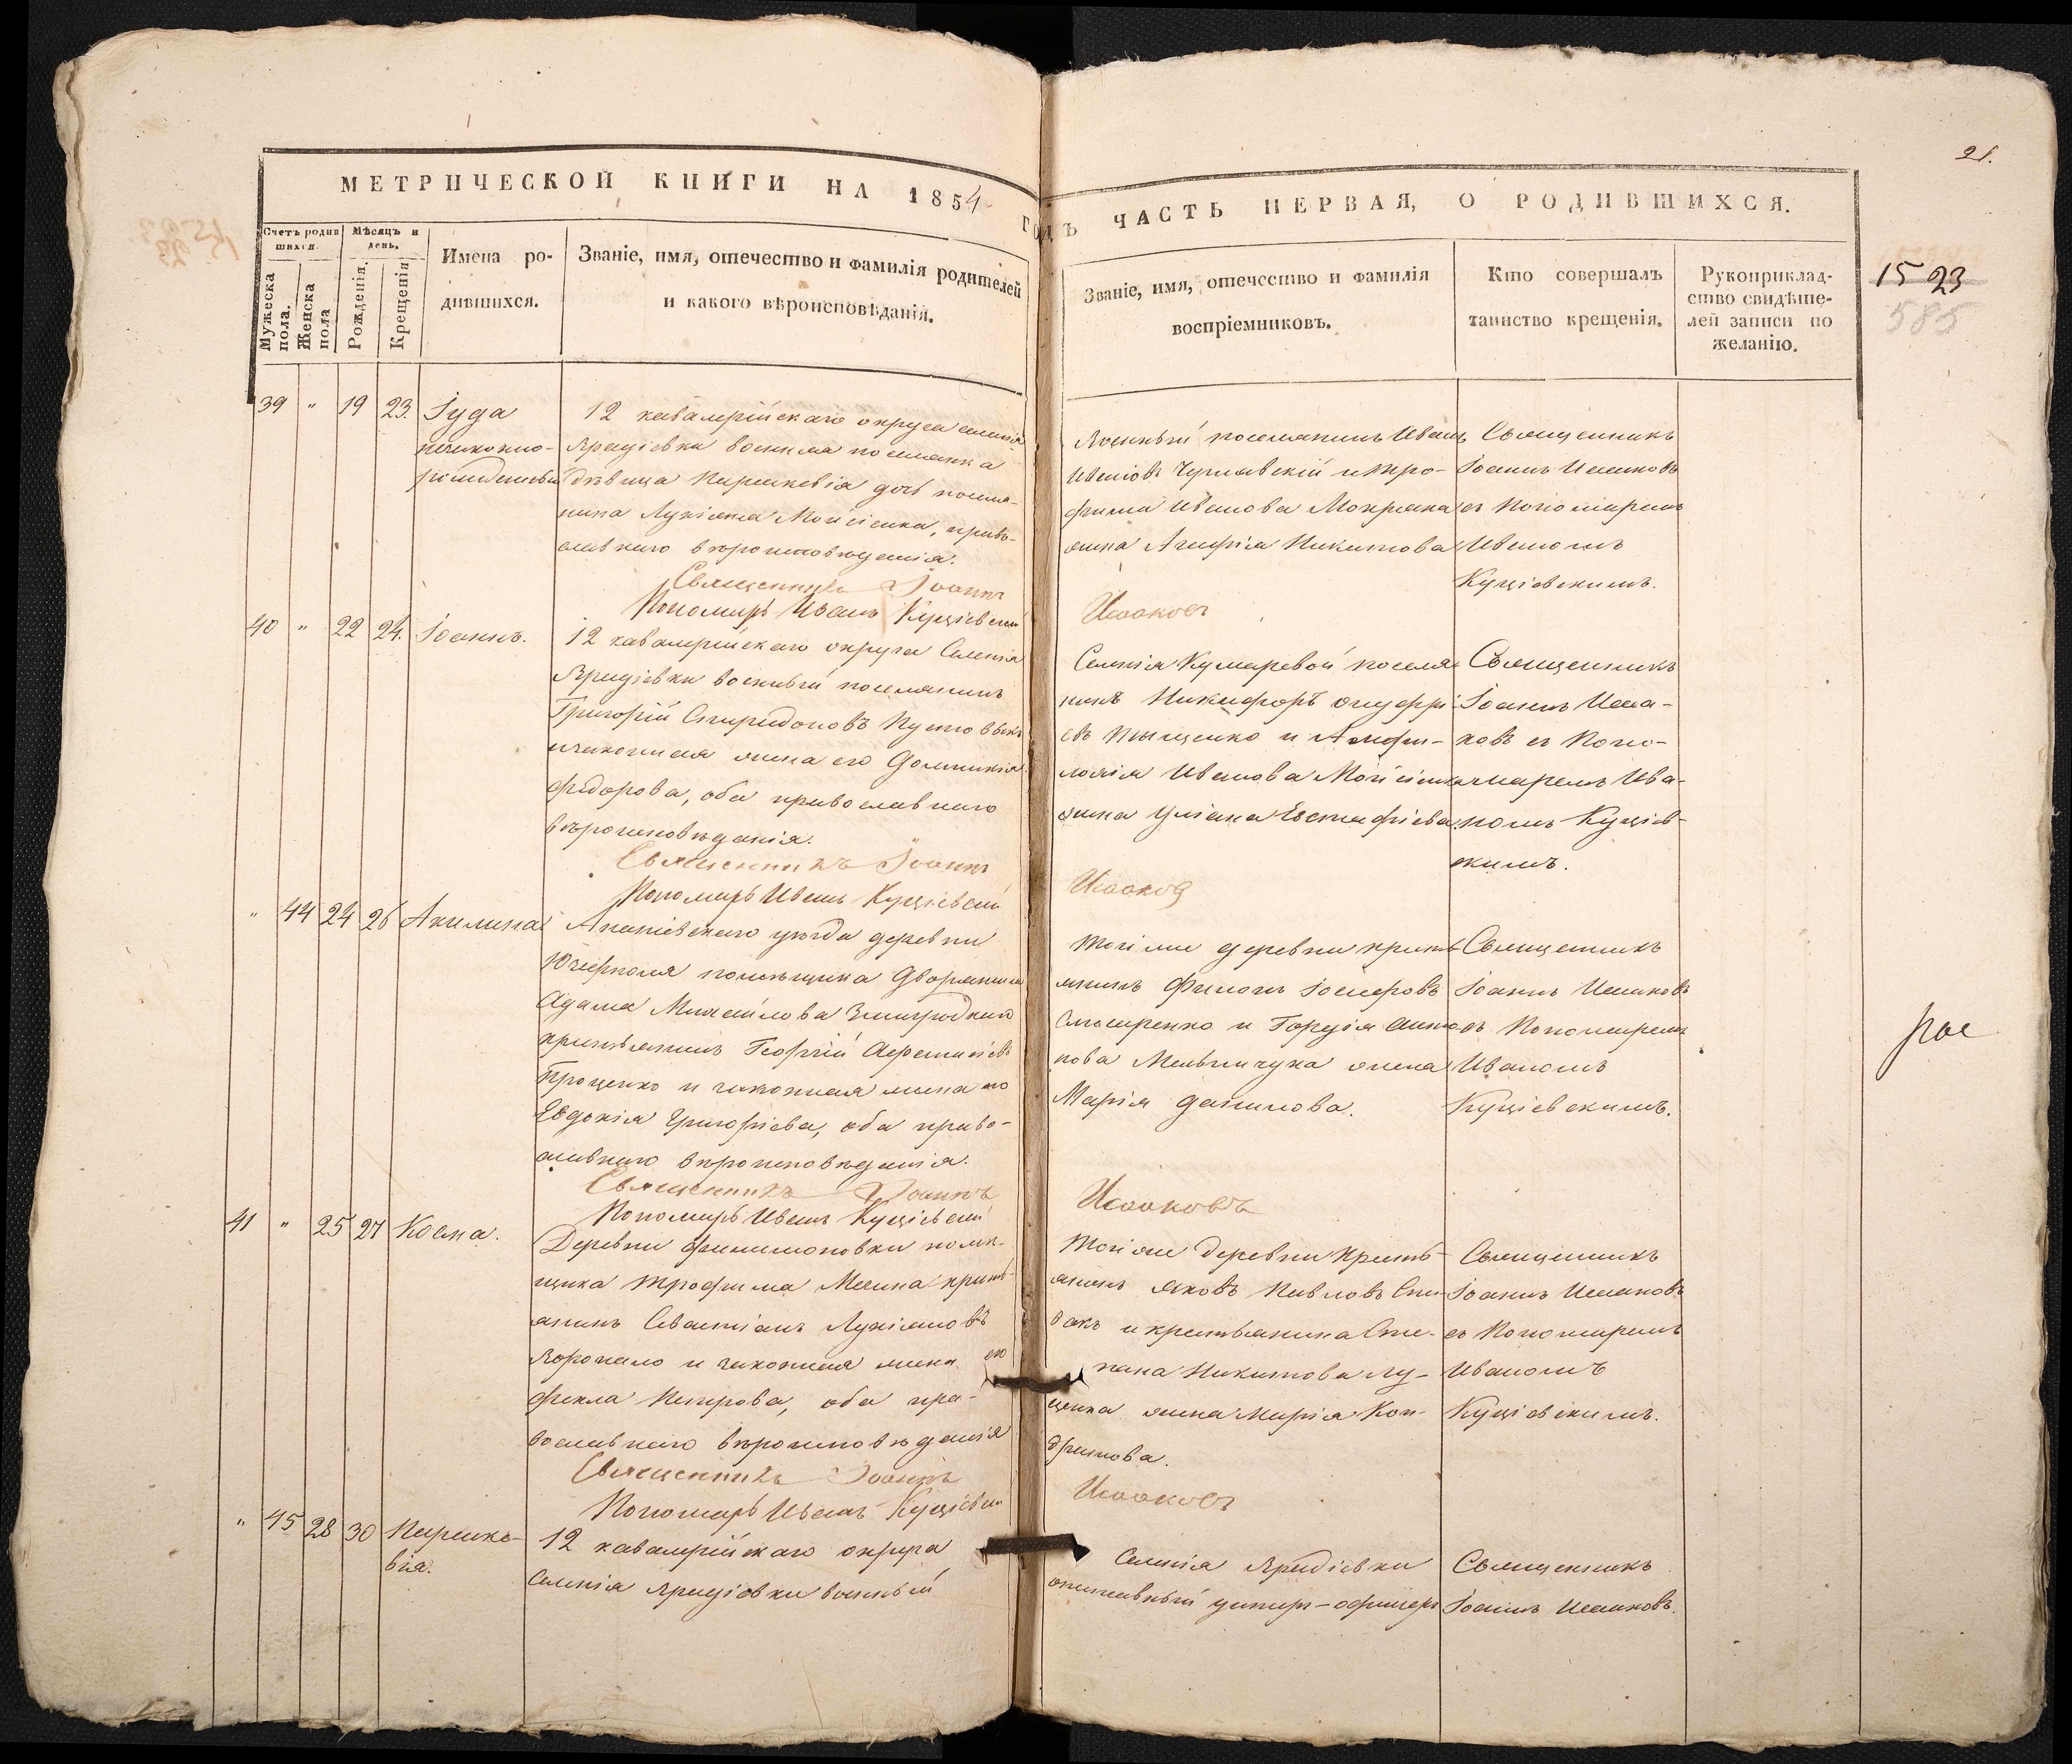 21.
МЕТРИЧЕСКОЙ КНИГИ НА 1854
ГОДЪ ЧАСТЬ ПЕРВАЯ, О РОДИВШИХСЯ.
Счетъ родив
шихся.
Мужеска
пола.
Женска
пола
Мѣсяцъ и
день.
Рожденія.
Крещенія
Имена ро-
дившихся.
Званіе, имя, отечество и фамилія родителей
и какого вѣроисповѣданія.
Званіе, имя, отечество и фамилія
воспріемниковъ.
Кто совершалъ
таинство крещенія.
Рукоприклад-
ство свидѣте-
лей записи по
желанію.
15 23
585
39 " 19 23. Іуда
незаконно-
рожденный
12 кавалерійскаго округа селенія
военная поселянка
дѣвица Параскевія дочь поселя-
нина Лукіяна Мойсіенка, право-
славнаго вѣроисповѣданія.
Священникъ Іоаннъ
Исааковъ
Пономарь Иванъ Куціевскій
Военный поселянинъ Иванъ
Ивановъ Чернявскій и Тро-
фима Иванова Мокряка
жена Агафія Никитова
Священникъ
Іоаннъ Исааковъ
съ Пономаремъ
Иваномъ
Куціевскимъ.
40 " 22 24. Іоаннъ.
12 кавалерійскаго округа Селенія
военный поселянинъ
Григорій Спиридоновъ
и законная жена его Домникія
Федорова, оба православнаго
вѣроисповѣданія.
Священникъ Іоаннъ
Исааковъ
Пономарь Иванъ Куціевскій
Селенія Кумаревой поселя-
нинъ Никифоръ Онуфрі-
евъ и
Иванова Мойсіенка
жена Уліана Евстафіева.
Священникъ
Іоаннъ Исаа-
ковъ съ Поно-
маремъ Ива-
номъ Куціев-
скимъ.
" 44 24 26 Акилина
Ананіевскаго уѣзда деревни
помѣщика Дворянина
Адама Михайлова
крестьянинъ Георгій
Проценко и законная жена его
Евдокія Григоріева, оба право-
славнаго вѣроисповѣданія.
Священникъ Іоаннъ
Исааковъ
Пономарь Иванъ Куціевскій
Той же деревни кресть-
янинъ Филипъ Іосифовъ
Слюсаренко и Гордія Анто-
нова Мельничука жена
Марія Данилова.
Священникъ
Іоаннъ Исааковъ
съ Пономаремъ
Иваномъ
Куціевскимъ.
41 " 25 27 Косма.
Деревни Филимоновки помѣ-
щика Трофима кресть-
янинъ Севастіанъ Лукіановъ
и законная жена его
Фекла Петрова, оба пра-
вославнаго вѣроисповѣданія
Священникъ Іоаннъ
Исааковъ
Пономарь Иванъ Куціевскій
Той же деревни Кресть-
янинъ Яковъ Павловъ Спи-
вакъ и крестьянина Сте-
пана Никитова Лу-
ценка жена Марія Кон-
дратова.
Священникъ
Іоаннъ Исааковъ
съ Пономаремъ
Иваномъ
Куціевскимъ.
" 45 28 30 Параске-
вія.
12 кавалерійскаго округа
Селенія военный
Селенія
отставный унтеръ-офицеръ
Священникъ
Іоаннъ Исааковъ.